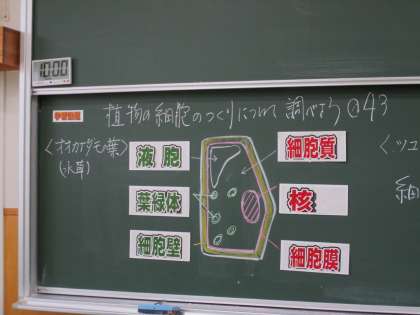 10:00
学習課題 植物の細胞のつくりについて調べよう 43
<オオカナダモの葉> <ツ
(水草) 細
液胞 細胞質
葉緑体 核
細胞壁 細胞膜